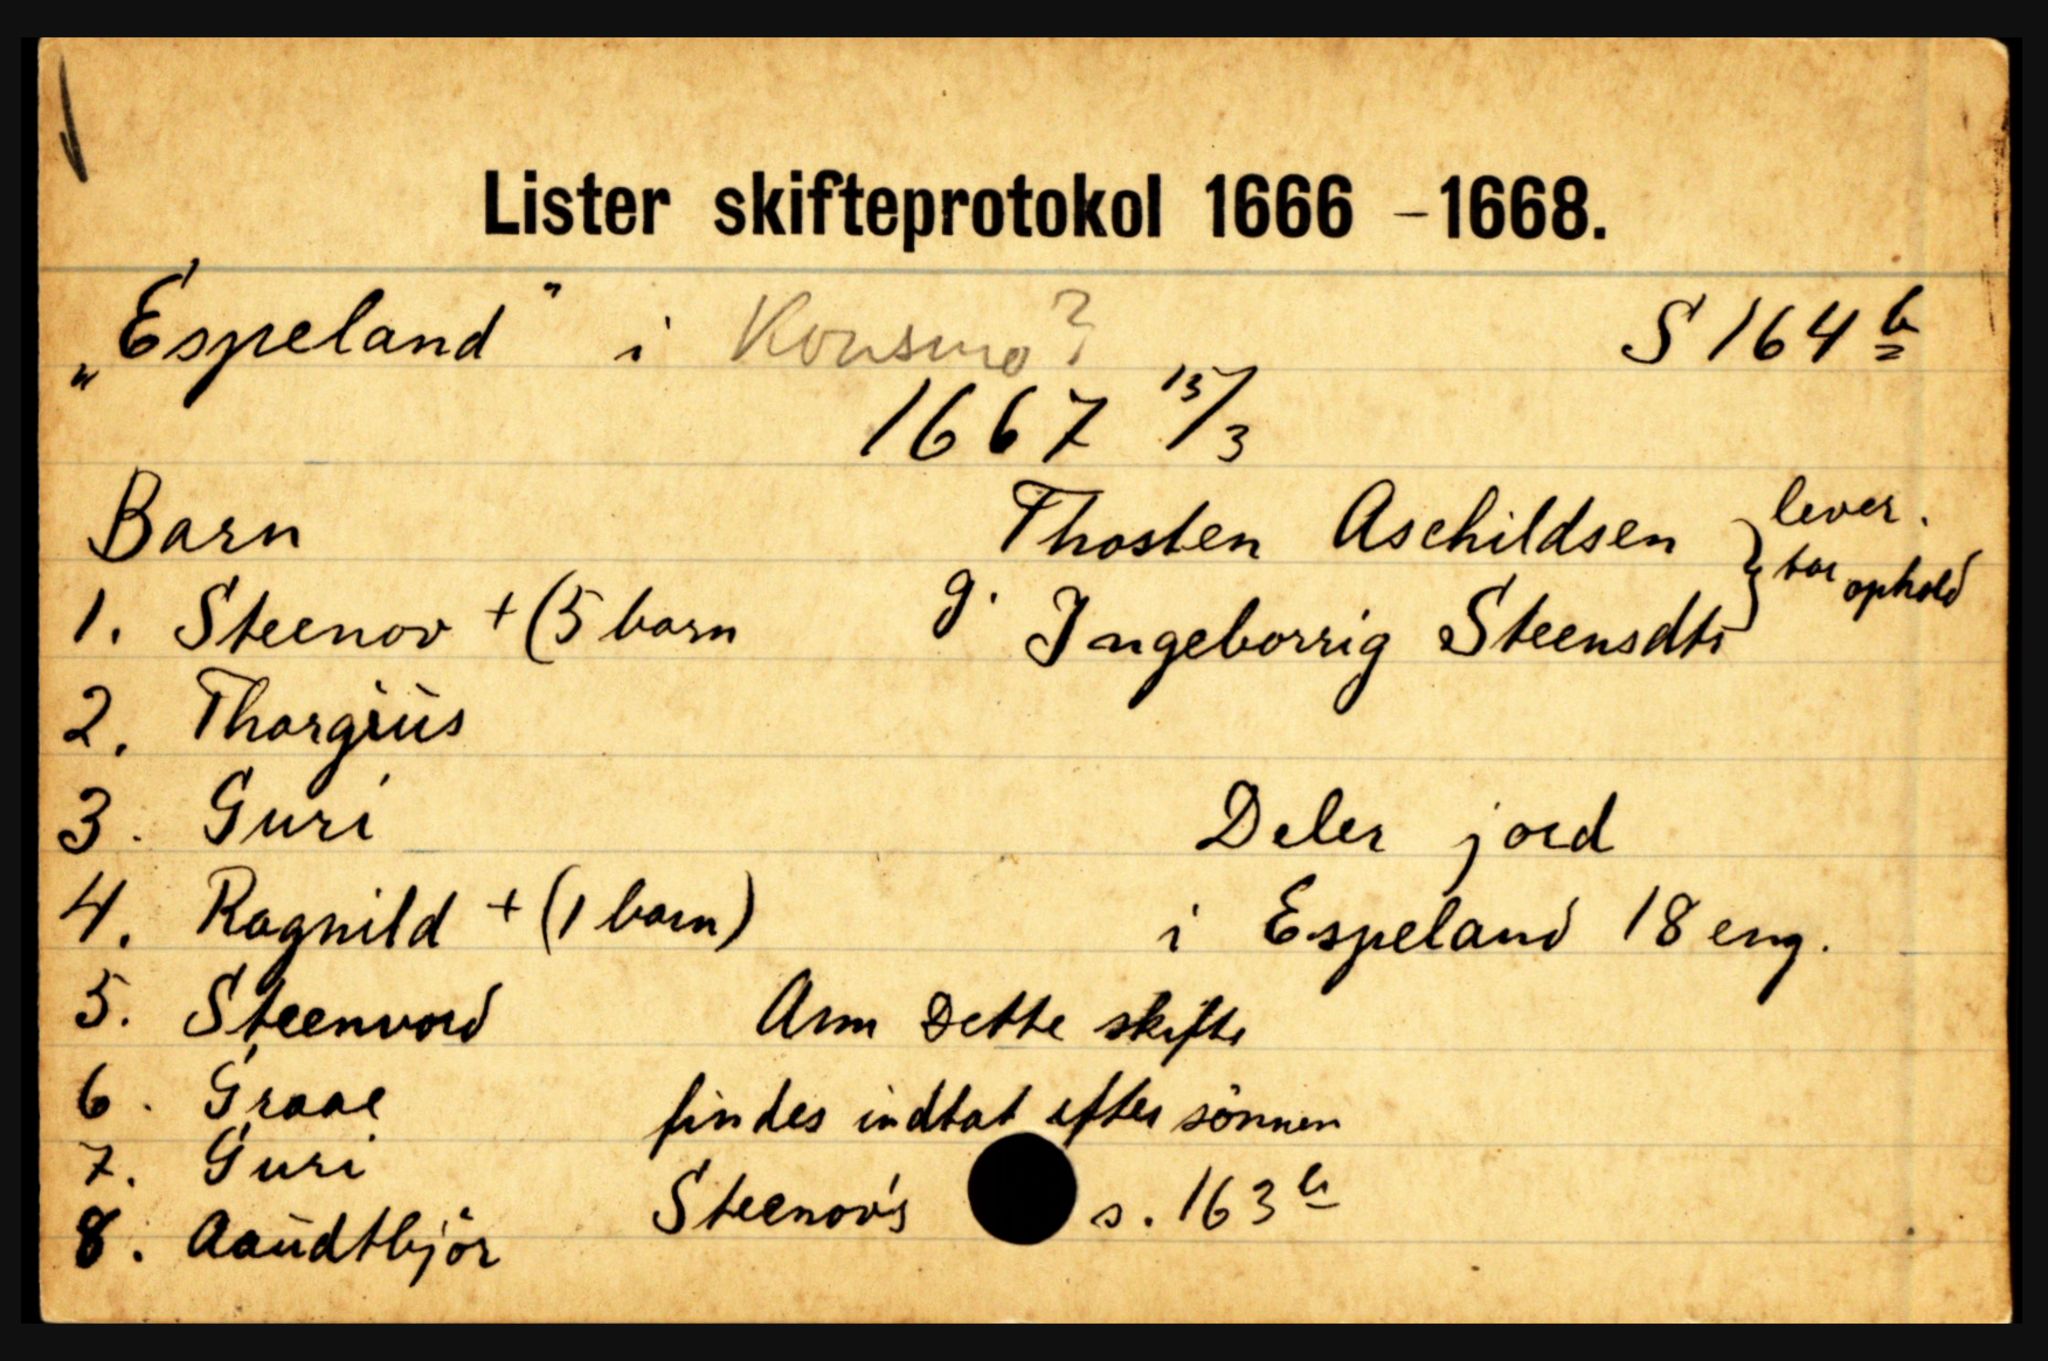 Lister skifteprotokol 1666 - 1668.
„Espeland" i Konsmo? S 164 b
1667 13/3
Barn Thosten Aschildsen } lever.
tar ophold
1. Steenov + (5 barn g. Ingeborrig Steensdtr
2. Thorgius
3. Guri Deler jord
4. Ragnild + (1 barn) i Espeland 18 eng.
5. Steenvord Anm Dette skifte
6. Graae findes indtat efter sönnen
7. Guri Steenov's s. 163 b
8. Aaudtbjör